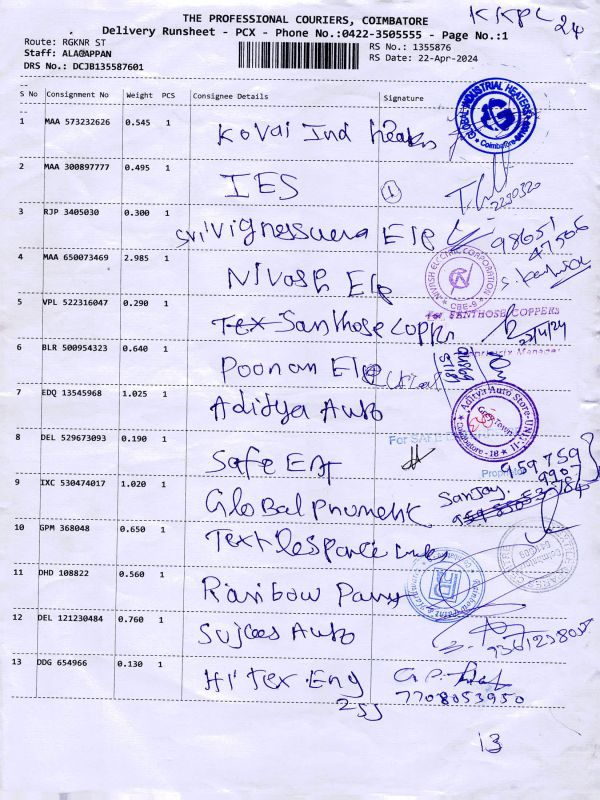 KKPC 24
THE PROFESSIONAL COURIERS, COIMBATORE
Delivery Runsheet - PCX - Phone No.:0422-3505555 - Page No.:1
Route: RGKNR ST
Staff: ALAGAPPAN
DRS No.: DCJB135587601
RS No.: 1355876
RS Date: 22-Apr-2024
S No Consignment No Weight PCS Consignee Details Signature
GLOBAL INDUSTRIAL HEATERS
Coimbatore
1 MAA 573232626 0.545 1 Kovai Ind heaters
2 MAA 300897777 0.495 1 IES 1
2230320
3 RJP 3405030 0.300 1 Sri Vignessuera Ele
98651
47506
4 MAA 650073469 2.985 1 Nivash Ele
NIVASH ELECTRIC CORPORATION
CBE-9
5 VPL 522316047 0.290 1 Tex Santhose Copper
For SANTHOSE COPPERS
23/4/24
Manager
6 BLR 500954323 0.640 1 Poonam Ele
7 EDQ 13545968 1.025 1 Aditya Auto
Aditya Auto Store-UNIT-II
Coimbatore - 18
8 DEL 529673093 0.190 1 Safe EAT
For SAFE
959759
9907
9 IXC 530474017 1.020 1 Global Pnumetic
Sanjay
10 GPM 368048 0.650 1
11 DHD 108822 0.560 1 Rainbow Pans
12 DEL 121230484 0.760 1 Sujees Auto
9361258057
13 DDG 654966 0.130 1 Hi Tex. Eng
G.P.
7708053950
255
13